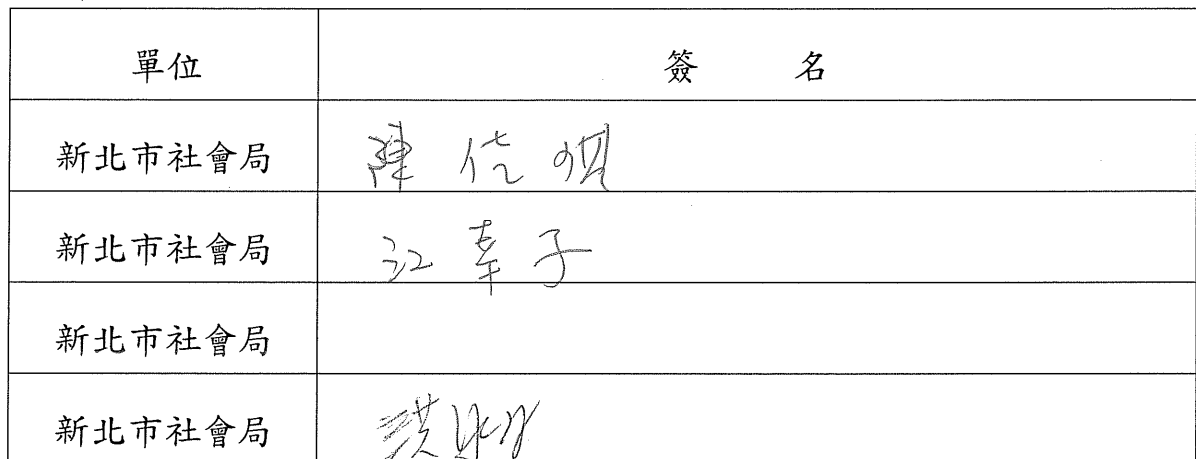 單位 簽 名
新北市社會局 陳佳琪
新北市社會局 江幸子
新北市社會局
新北市社會局